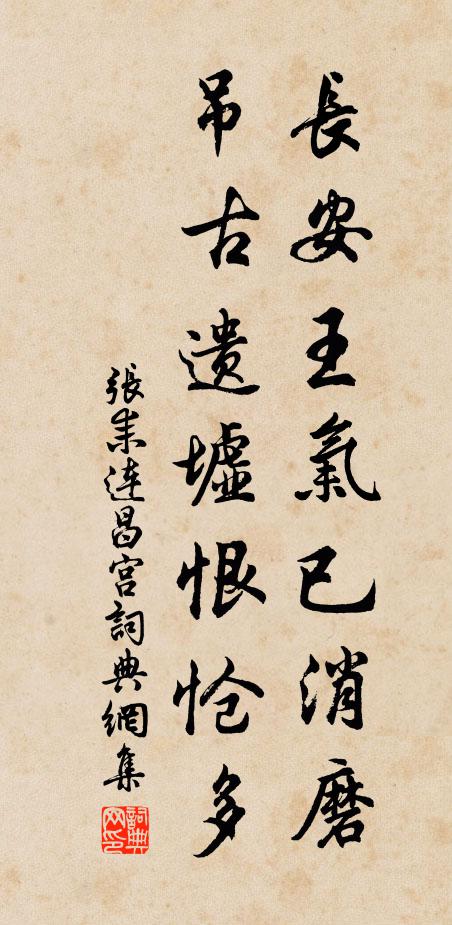 長安王氣已消磨
吊古遗墟恨怆多
張耒連昌宮詞典網集
詞典网印